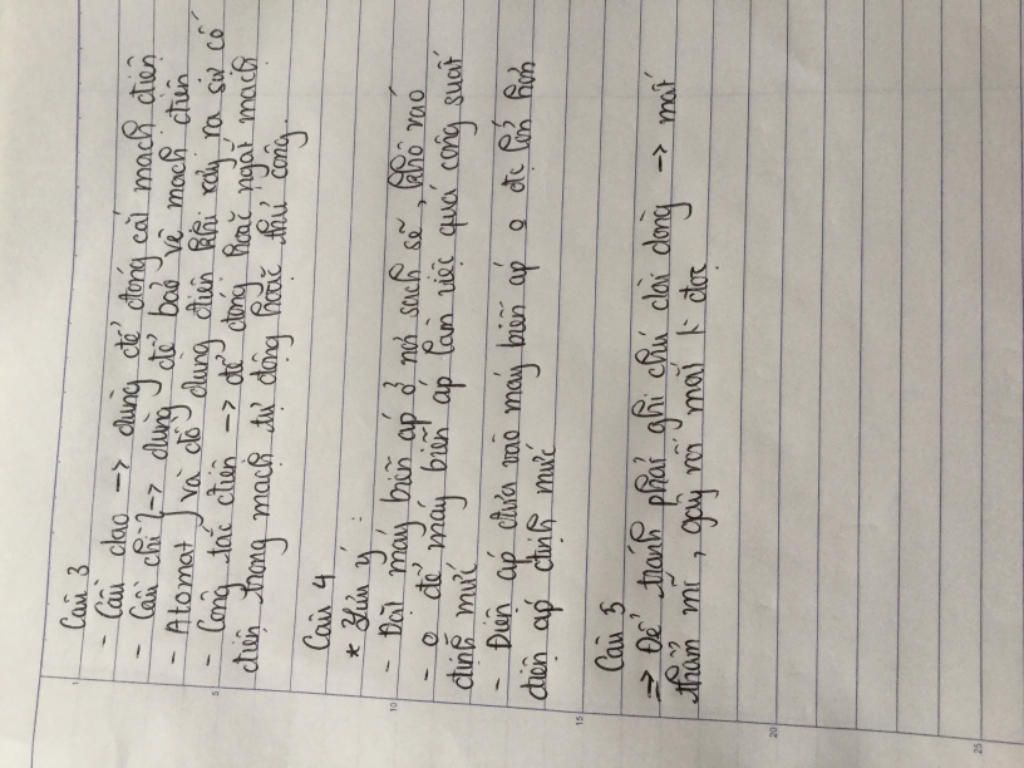 Câu 3
- Cầu dao -> dùng để đóng cắt mạch điện
- Cầu chì } -> dùng để bảo vệ mạch điện
- Atomat } và đồ dùng điện khi xảy ra sự cố
- Công tắc điện -> để đóng hoặc ngắt mạch
điện trong mạch tự động hoặc thủ công.
Câu 4
* Lưu ý :
- Đặt máy biến áp ở nơi sạch sẽ, khô ráo
- o để máy biến áp làm việc quá công suất
định mức
- Điện áp đưa vào máy biến áp o đc lớn hơn
điện áp định mức
Câu 5
=> Để tránh phải ghi chú dài dòng -> mất
thẩm mĩ, gây rối mắt
1
5
10
15
20
25